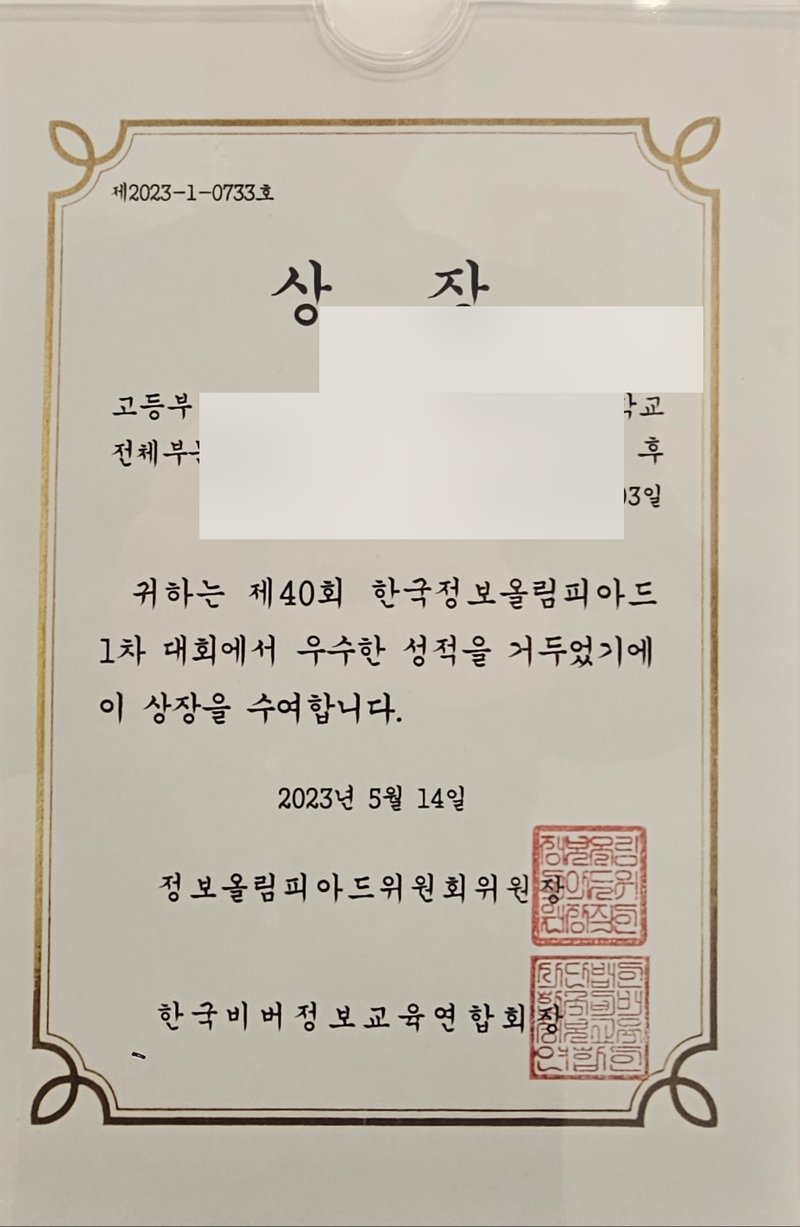 제2023-1-0733호
상 장
고등부
전체부문
후
03일
귀하는 제40회 한국정보올림피아드
1차 대회에서 우수한 성적을 거두었기에
이 상장을 수여합니다.
2023년 5월 14일
정보올림피아드위원회위원장
한국비버정보교육연합회장